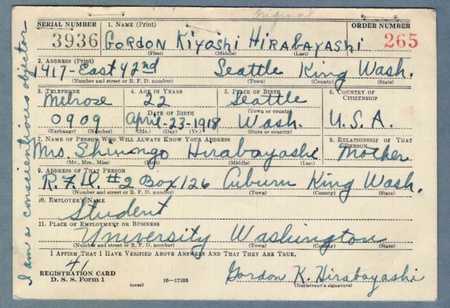 Original
SERIAL NUMBER 1. NAME (Print) ORDER NUMBER
3936 GORDON KIYOSHI HIRABAYASHI 265
(First) (Middle) (Last)
2. ADDRESS (Print)
417-East 42nd Seattle King Wash.
(Number and street or R. F. D. number) (Town) (County) (State)
3. TELEPHONE 4. AGE IN YEARS 5. PLACE OF BIRTH 6. COUNTRY OF CITIZENSHIP
Melrose 22 Seattle
DATE OF BIRTH (Town or county)
0909 April-23-1918 Wash. U.S.A.
(Exchange) (Number) (Mo.) (Day) (Yr.) (State or country)
7. NAME OF PERSON WHO WILL ALWAYS KNOW YOUR ADDRESS 8. RELATIONSHIP OF THAT PERSON
Mrs. Shimongo Hirabayashi Mother
(Mr., Mrs., Miss) (First) (Middle) (Last)
9. ADDRESS OF THAT PERSON
R.#10 #2 Box 126 Auburn King Wash.
(Number and street or R. F. D. number) (Town) (County) (State)
10. EMPLOYER'S NAME
Student
11. PLACE OF EMPLOYMENT OR BUSINESS
University Washington
(Number and street or R. F. D. number) (Town) (County) (State)
I AFFIRM THAT I HAVE VERIFIED ABOVE ANSWERS AND THAT THEY ARE TRUE.
41
REGISTRATION CARD
D. S. S. Form 1 (over) 16-17105 Gordon K. Hirabayashi
(Registrant's signature)
I am a conscientious objector